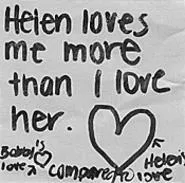 Helen loves
me more
than I love
her.
Bobby's
love
compared to
Helen's
love